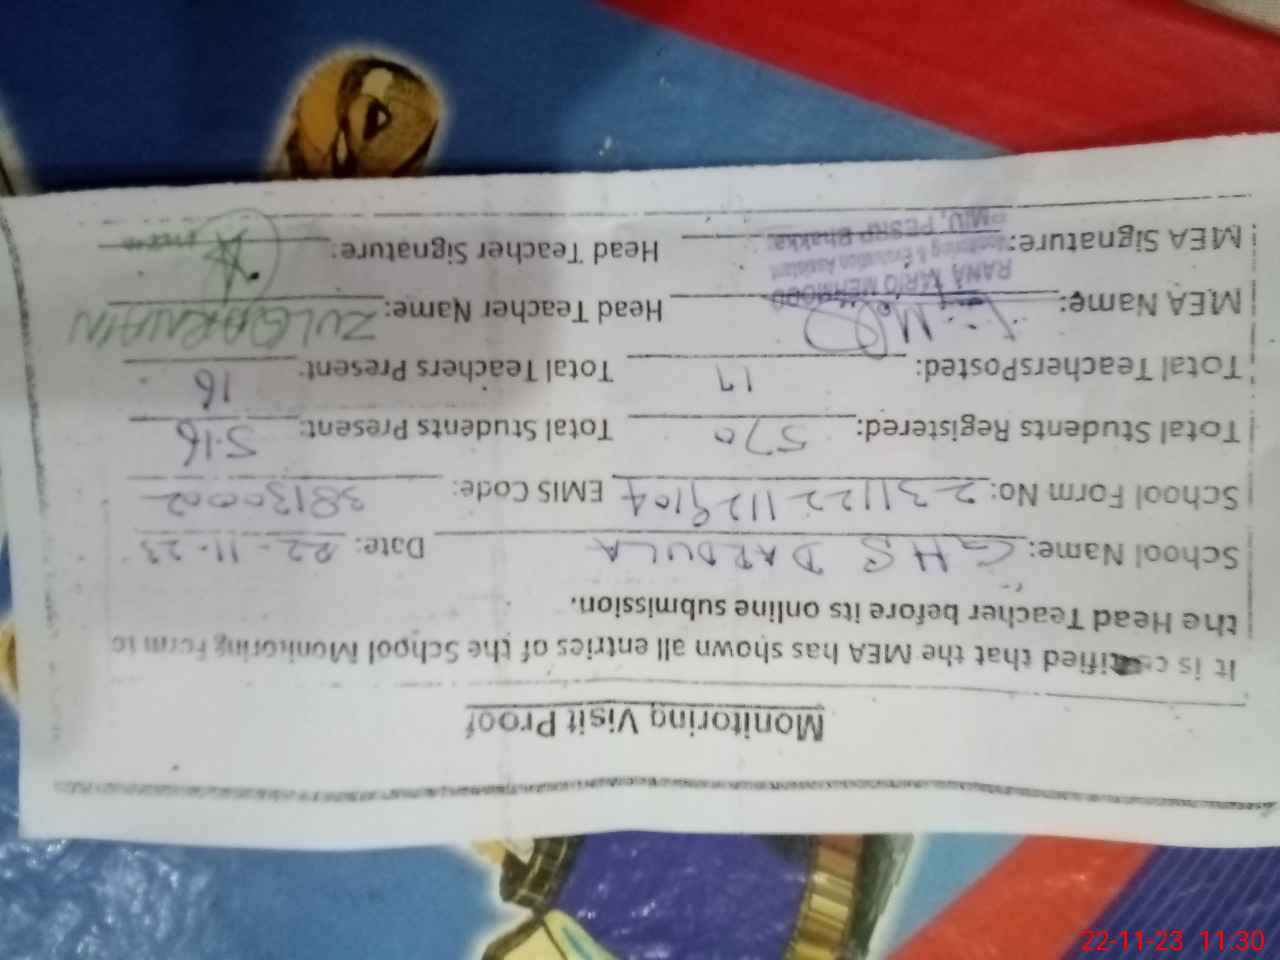 Monitoring Visit Proof
It is certified that the MEA has shown all entries of the School Monitoring Form to
the Head Teacher before its online submission.
School Name: GHS DARDULA Date: 22-11-23
School Form No: 231122-1129104 EMIS Code: 38130002
Total Students Registered: 570 Total Students Present: 516
Total TeachersPosted: 17 Total Teachers Present: 16
MEA Name: Head Teacher Name: ZULQARNAIN
RANA TARIQ MEHMOOD
Monitoring & Evaluation Assistant
PMIU, PESRP Bhakkar
MEA Signature: Head Teacher Signature:
22-11-23 11:30